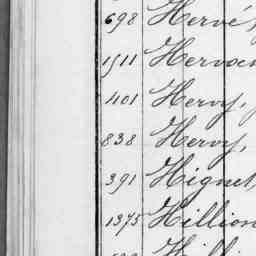 698 Hervé,
1511 Hervoch
401 Hervy,
838 Hervy,
391 Hignet,
1375 Hillion